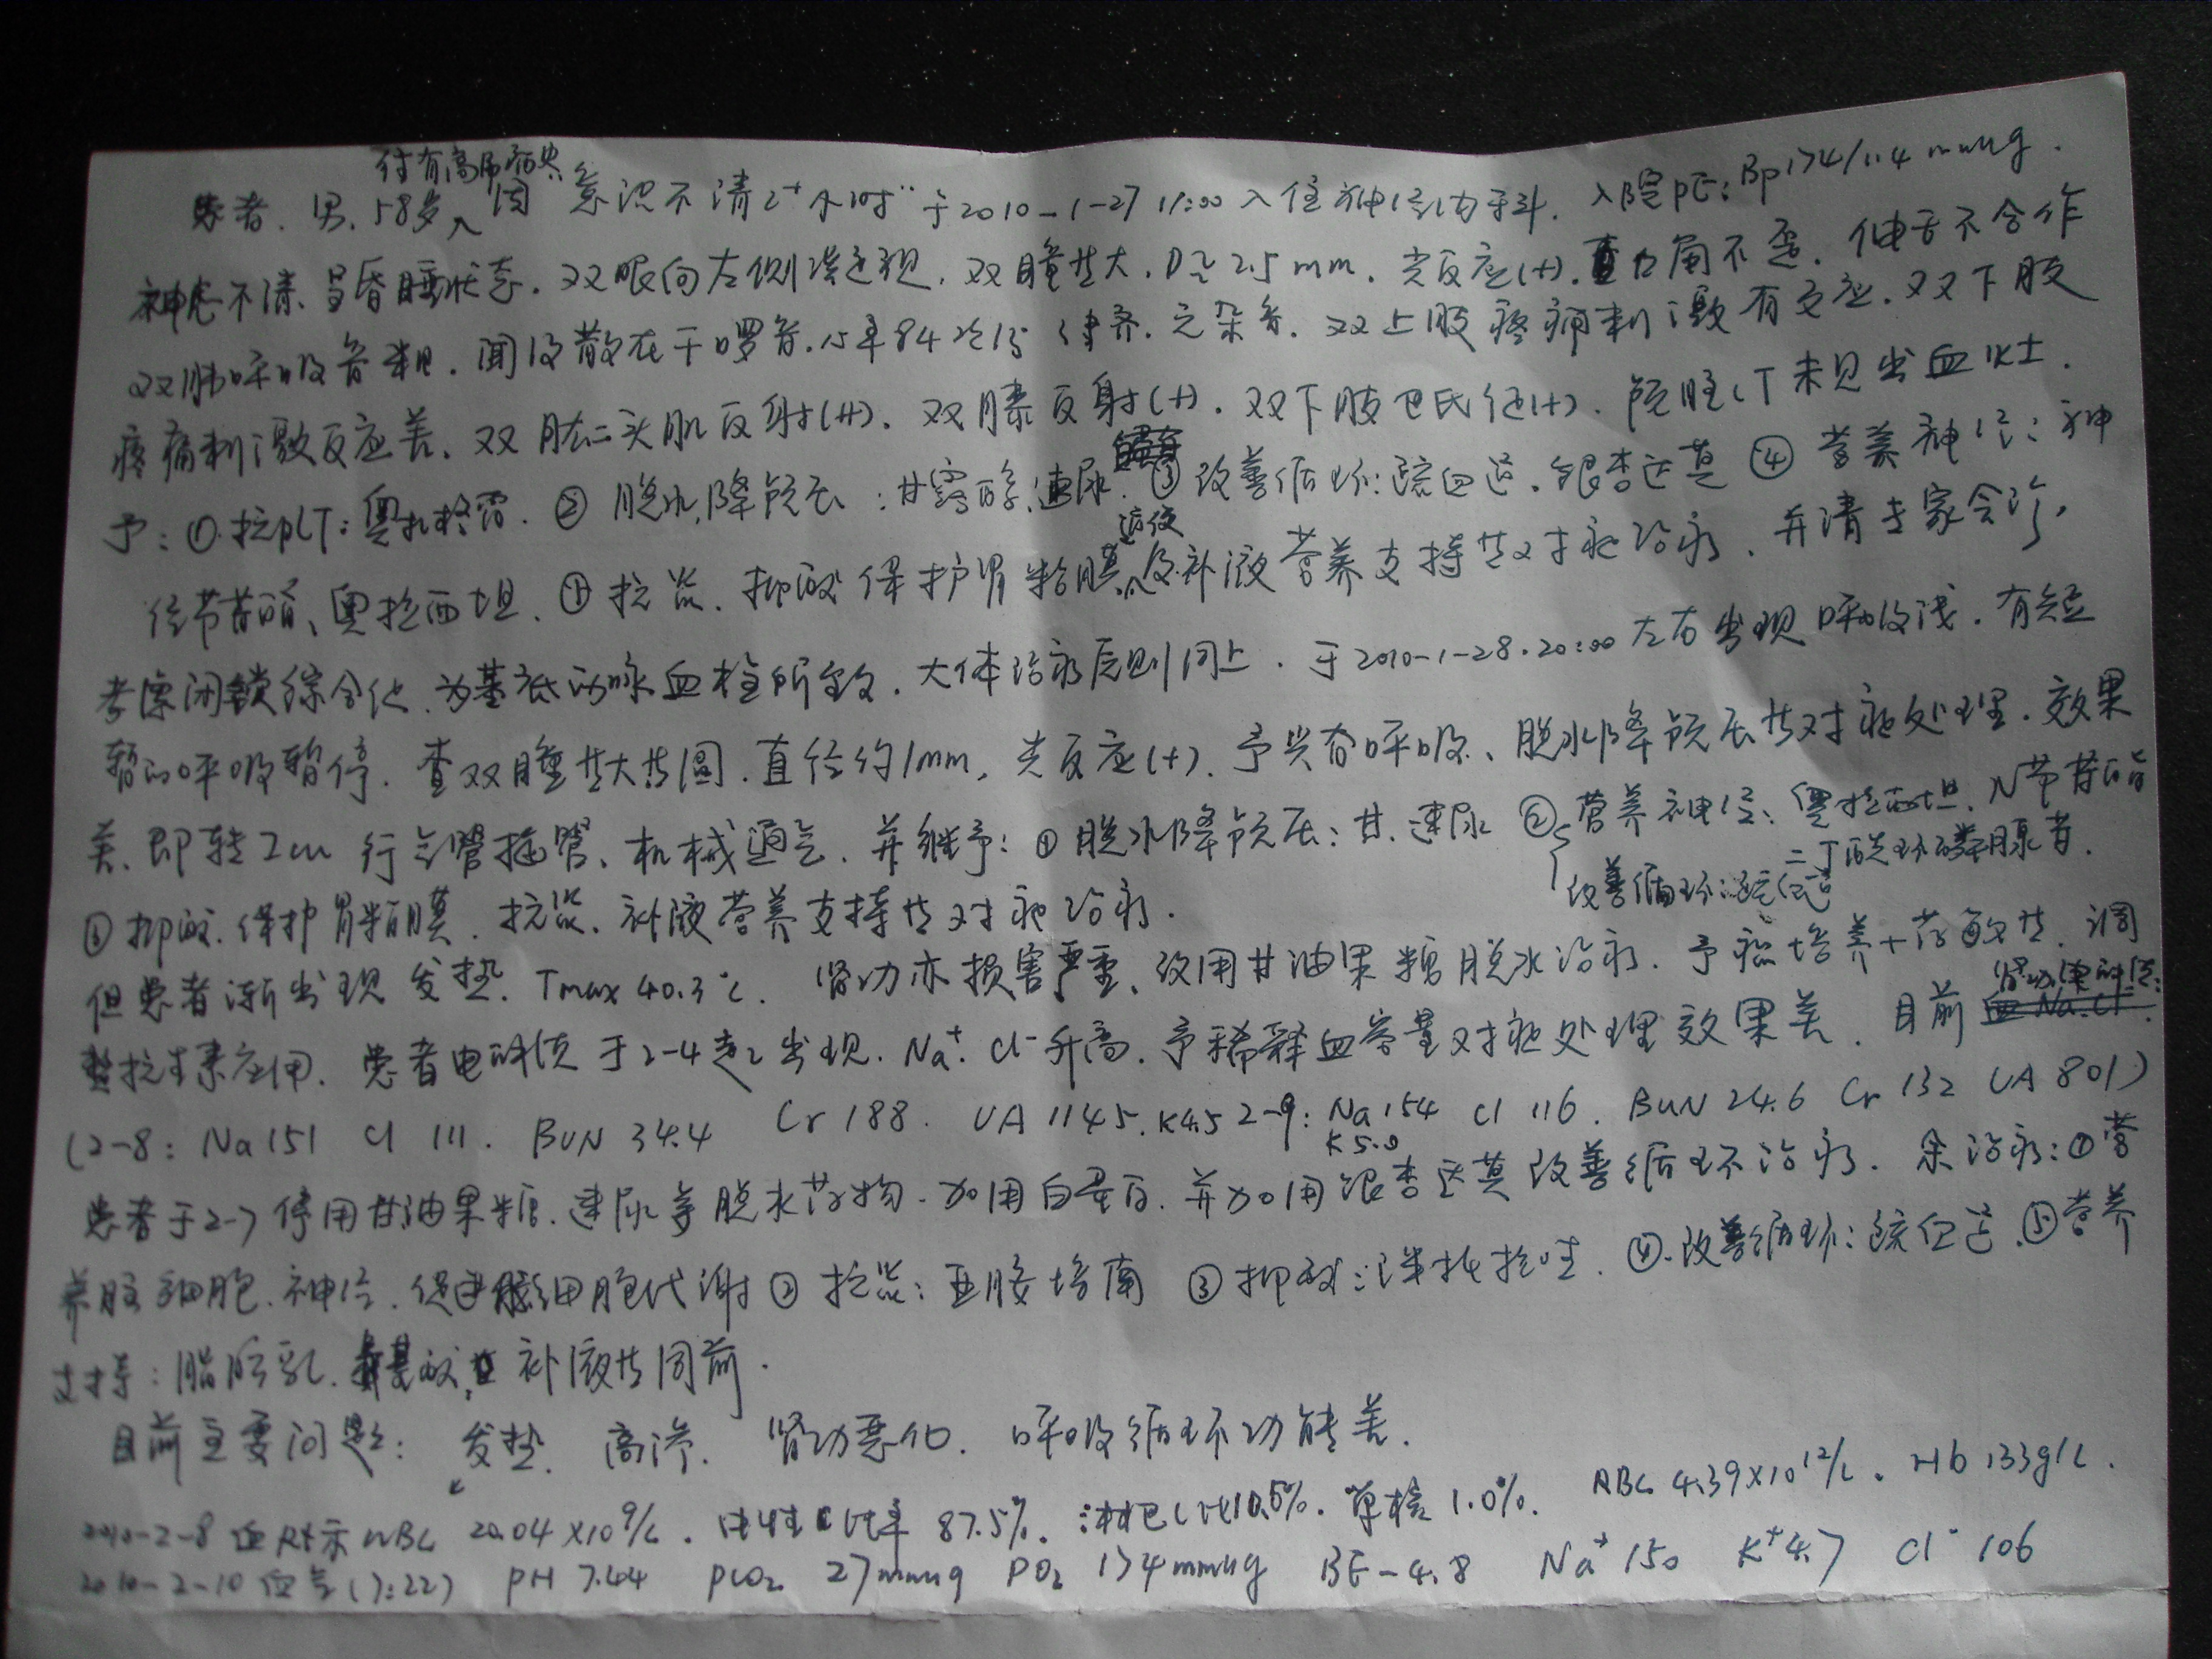 付有高尿病史
患者、男、58岁、因"意识不清2⁺小时"于2010-1-27 11:00入住神经内科. 入院PE: Bp 174/114 mmHg.
神志不清、呈昏睡状态. 双眼向左侧凝视, 双瞳等大, D≈2.5mm, 光反应(+), 口角不歪, 伸舌不合作
双肺呼吸音粗. 闻及散在干啰音. 心率84次/分 律齐. 无杂音. 双上肢疼痛刺激有反应. 双下肢
疼痛刺激反应差. 双肱二头肌反射(++). 双膝反射(+). 双下肢巴氏征(+). 颅脑CT未见出血灶.
予: ①抗PLT: 奥扎格雷. ②脱水,降颅压: 甘露醇,速尿. ③改善循环: 疏血通. 银杏达莫 ④营养神经: 神
经节苷酯、奥拉西坦. ①抗炎. 抑酸保护胃粘膜、通便及补液营养支持等对症治疗. 并请专家会诊,
考虑闭锁综合征. 为基底动脉血栓所致. 大体治疗原则同上. 于2010-1-28.20:00左右出现呼吸浅. 有短
暂的呼吸暂停. 查双瞳等大等圆. 直径约1mm, 光反应(+). 予兴奋呼吸、脱水降颅压等对症处理. 效果
差. 即转Icu 行气管插管、机械通气. 并继予: ①脱水降颅压: 甘.速尿 ②营养神经: 奥拉西坦. N节苷酯
二丁酰环磷腺苷.
改善循环: 疏血通
③抑酸.保护胃粘膜. 抗炎. 补液营养支持等对症治疗.
但患者渐出现发热. Tmax 40.3℃. 肾功亦损害严重、改用甘油果糖脱水治疗. 予痰培养+药敏等. 调
整抗生素应用. 患者电解质于2-4起出现. Na⁺. Cl⁻升高. 予稀释血容量对症处理效果差. 目前肾功,电解质:
(2-8: Na 151 Cl 111. BUN 34.4 Cr 188. UA 1145. K4.5 2-9: Na 154 Cl 116. BUN 24.6 Cr 132 UA 801)
K 5.0
患者于2-7停用甘油果糖.速尿等脱水药物. 加用白蛋白. 并加用银杏达莫改善循环治疗. 余治疗: ①营
养脑细胞.神经. 促进脑细胞代谢 ②抗炎: 亚胺培南 ③抑酸: 泮托拉唑. ④.改善循环: 疏血通. ⑤营养
支持: 脂肪乳. 氨基酸. 补液等同前.
目前主要问题: 发热. 高渗. 肾功恶化. 呼吸循环功能差.
2010-2-8 血Rt示WBC 20.04×10⁹/L. 中性C比率 87.5%. 淋巴C比10.5%. 单核1.0%. RBC 4.39×10¹²/L. Hb 133g/L.
2010-2-10 血气(7:22) PH 7.44 PCO₂ 27mmHg PO₂ 174mmHg BE-4.8 Na⁺ 150 K⁺ 4.7 Cl⁻ 106